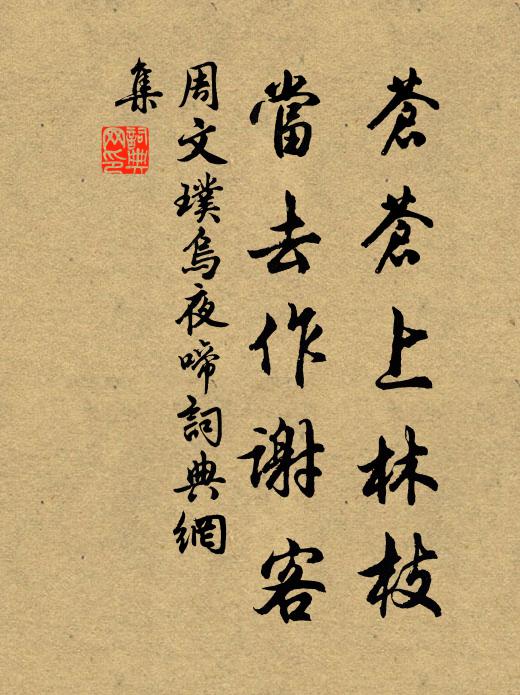 蒼蒼上林枝
當去作謝客
周文璞烏夜啼詞典網
集
詞典網印